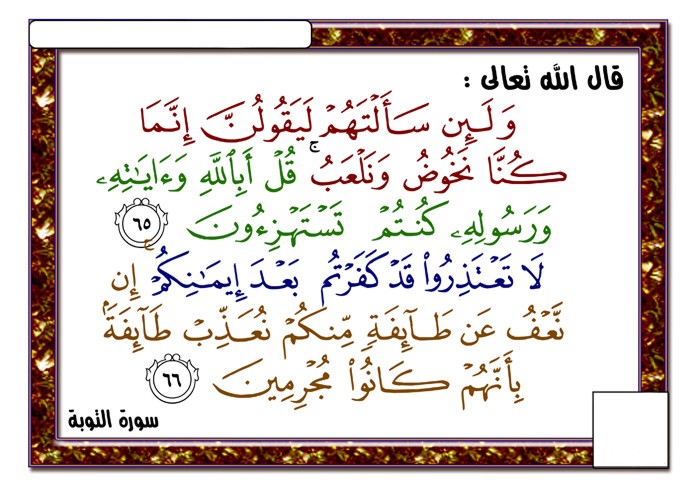 قال الله تعالى :
وَلَئِن سَأَلْتَهُمْ لَيَقُولُنَّ إِنَّمَا
كُنَّا نَخُوضُ وَنَلْعَبُ ۚ قُلْ أَبِٱللَّهِ وَءَايَـٰتِهِۦ
وَرَسُولِهِۦ كُنتُمْ تَسْتَهْزِءُونَ ٦٥
لَا تَعْتَذِرُوا۟ قَدْ كَفَرْتُم بَعْدَ إِيمَـٰنِكُمْ ۚ إِن
نَّعْفُ عَن طَآئِفَةٍ مِّنكُمْ نُعَذِّبْ طَآئِفَةًۢ
بِأَنَّهُمْ كَانُوا۟ مُجْرِمِينَ ٦٦
سورة التوبة